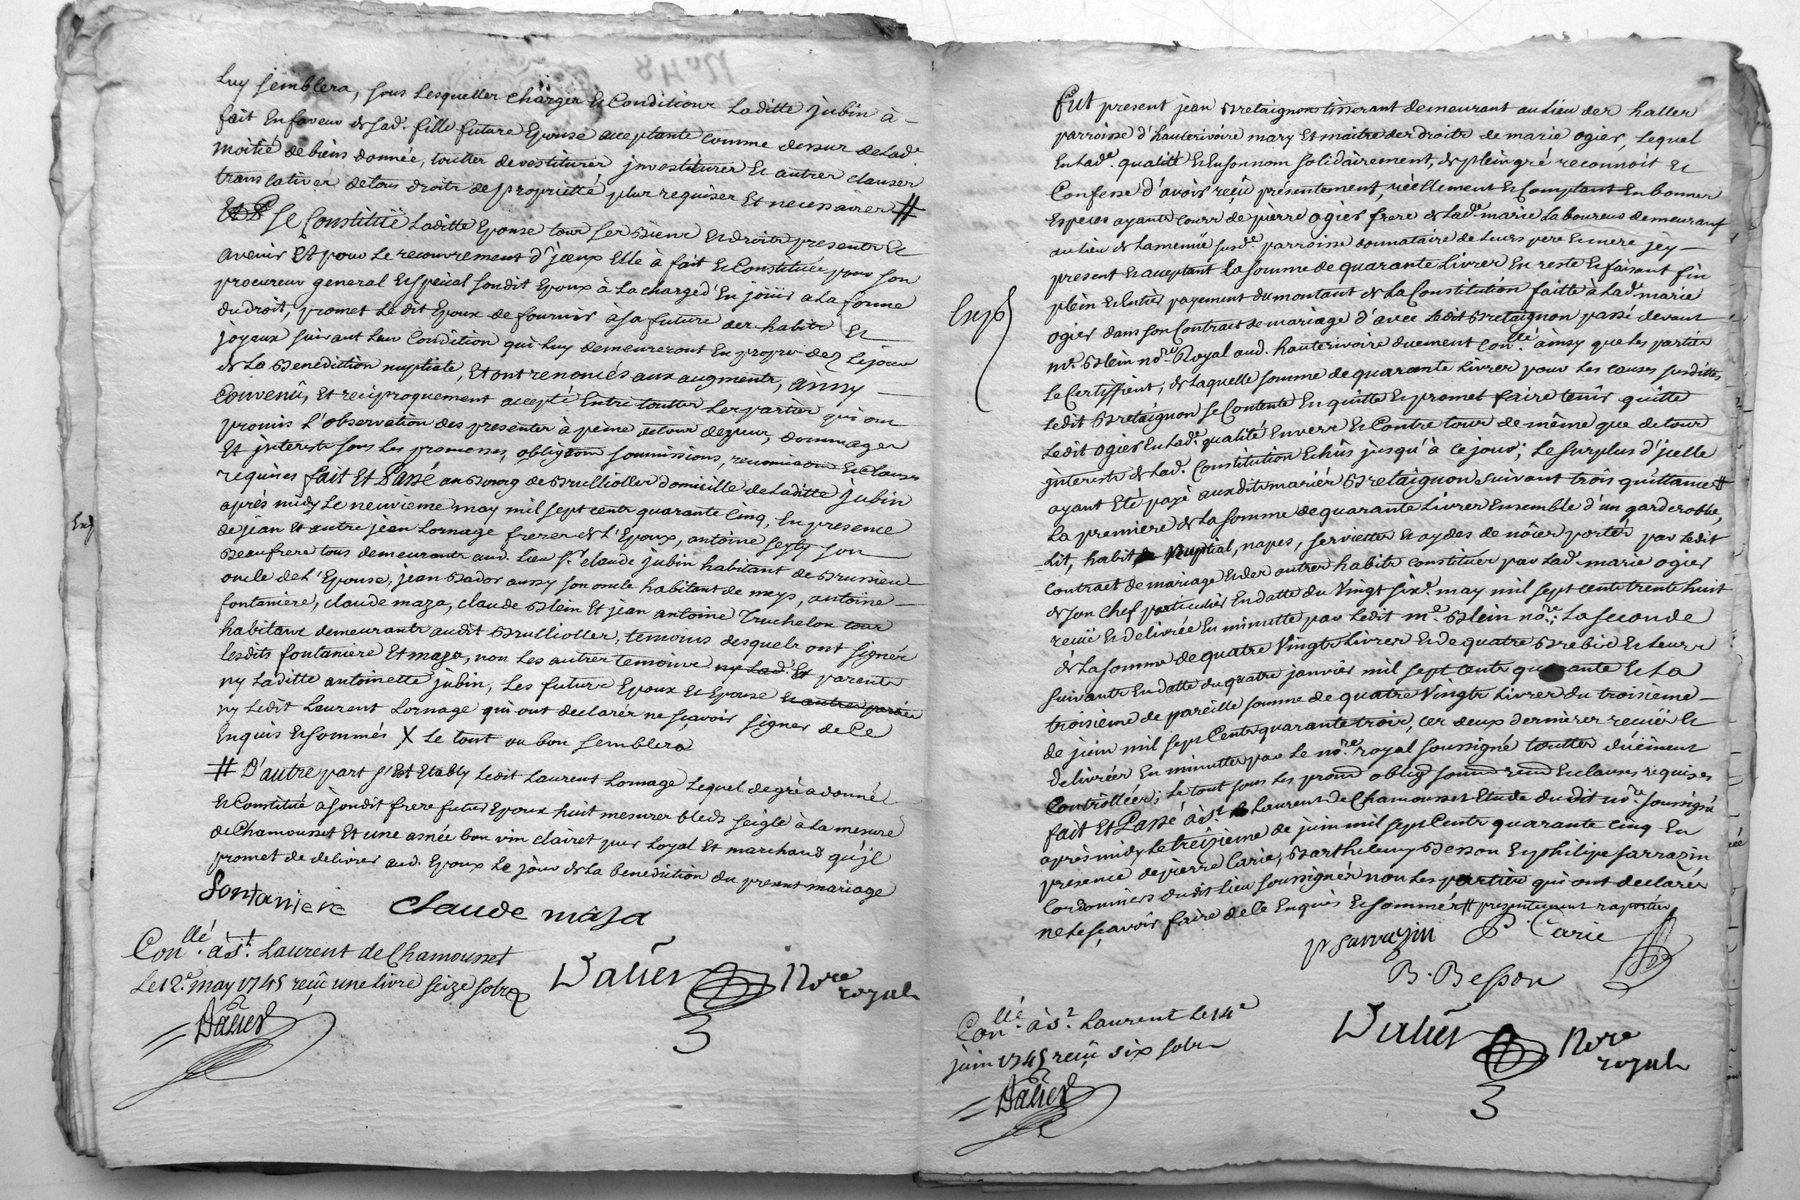 Luy semblera, sous Lesquelles charges et Conditions Laditte jubin à
fait En faveur de sad.e fille future Epouse acceptante comme dessus de Lad.e
moitié de biens donnée, touttes devestitures jnvestitures et autres clauses
translatives de tous droits de proprietté plus requises Et necessaires #
Se Constitüe Laditte Epouse tous ses Biens et droits presents et
avenir Et pour Le recouvrement d'jceux Elle a fait et Constitüe pour son
procureur general et special sondit Epoux à La charge d'En joüir a La forme
du droit, promet Ledit Epoux de fournir à sa future des habits et
joyaux suivant Leur Condition qui Luy demeureront En propre dez Le jour
de La Benediction nuptiale, Et ont renoncés aux augments, ainsy
Convenû, Et reciproquement accepté Entre touttes Les parties qui ont
promis L'observation des presentes à peine de tous depens, dommages
Et jnterests sous Les promesses, obligaons soumissions, renonciaons et clauses
requises fait Et Passé au Bourg de Brulliolles domicille de Laditte jubin
après midy Le neuvieme may mil sept cents quarante cinq, En presence
de jean Et autre jean Lornage freres de L'Epoux, antoine sexty son
Beaufrere tous demeurants aud. Lieu s.r claude jubin habitant de Brussieu
oncle de L'Epouse, jean Bador aussy son oncle habitant de meys, antoine
fontaniere, claude maza, claude Blein Et jean antoine Truchelon tous
habitans demeurants audit Brulliolles, temoins desquels ont signés
Lesdits fontaniere Et maza, non Les autres temoins ny Lad.e Et parents
ny Laditte antoinette jubin, Les futurs Epoux Et Epouse et autres parties
ny Ledit Laurent Lornage qui ont declarés ne sçavoir signer de Ce
Enquis et sommés X Le tout ou bon semblera
# D'autre part s'Est Etably Ledit Laurent Lornage Lequel de gré a donné
et Constitué à sondit frere futur Epoux huit mesures bled seigle à La mesure
de Chamousset Et une asnée bon vin clairet pur Loyal Et marchand qu'jl
promet de delivrer aud. Epoux Le jour de La benediction du present mariage
fontaniere claude mâza
Con.llé à S.t Laurent de Chamousset
Le 12.e may 1745 reçû une livre seize sols
Dalier Nore
royal
Dalier
Fut present jean Bretaignon tisserant demeurant au Lieu des halles
parroisse d'hauterivoire mary Et maitre des droits de marie ogier, Lequel
En Lad.e qualité et En son nom solidairement, de plein gré reconnoit et
Confesse d'avoir reçû présentement, réellement et Comptant En bonnes
Especes ayants cours de pierre ogier frere de Lad.e marie Laboureur demeurant
au Lieu de Lamenüe susd.e parroisse donnataire de Leurs pere et mere jcy
present et acceptant La somme de quarante Livres En reste et faisant fin
plein et Entier payement du montant de La Constitution faitte à Lad.e marie
Exp.é
ogier dans son Contract de mariage d'avec Ledit Bretaignon passé devant
m.e Blein no.re Royal aud. hauterivoire duement Con.llé ainsy que Les parties
Le Certiffient, de Laquelle somme de quarante Livres pour Les causes susdittes
Ledit Bretaignon se Contente En quitte et promet faire tenir quitte
Ledit ogier En Lad.e qualité Envers et Contre tous de même que de tous
jnterests de Lad. Constitution Echûs jusqu'à ce jour; Le surplus d'jcelle
ayant Eté payé auxdits mariés Bretaignon suivant trois quittances #
La premiere de La somme de quarante Livres Ensemble d'un garderobbe,
Lit, habit Nuptial, napes, serviettes Et aydes de nôces portés par Ledit
contract de mariage et des autres habits constitués par Lad. marie ogier
de son chef particulier En datte du Vingt six.e may mil sept cents trente huit
recüe et delivrée En minutte par Ledit m.e Blein no.re; La seconde
de La somme de quatre Vingts Livres et de quatre Brebis et Leurs
suivants En datte du quatre janvier mil sept cents quarante et La
troisieme de pareille somme de quatre Vingts Livres du troisieme
de juin mil sept Cents quarante trois, ces deux dernieres recües et
delivrées En minuttes par Le no.re royal soussigné touttes düement
Controllées; Le tout sous Les promd oblig soumd rend et clauses requises
fait Et Passé à S.t Laurent de Chamousset Etude dudit no.re soussigné
après midy Le treisieme de juin mil sept Cents quarante cinq En
presence de pierre Carie, Barthelemy Besson et philipe sarrazin
Cordonniers dudit lieu soussignés non Les parties qui ont declarés
ne Le sçavoir faire de Ce Enquis et sommés # presentement raportés
p sarrazin P Carie
B. Besson
Con.llé à S.t Laurent Le 14.e
juin 1745 reçû six sols
Dalier Nore
royal
Dalier